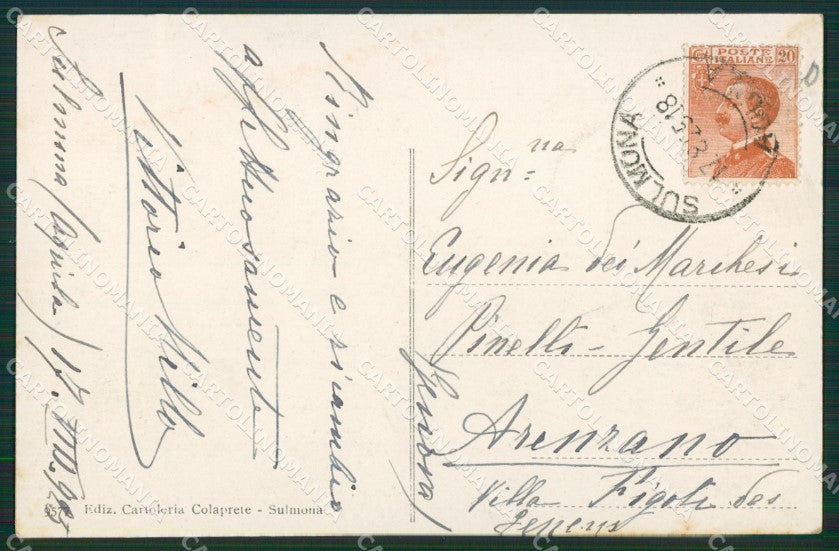 Sulmona (Aquila) 17.VIII.925
Ringrazio e ricambio
affettuosamente
Vittorio Villa
POSTE
ITALIANE
20
SULMONA
AQUILA
Sign.na
Eugenia dei Marchesi
Pinelli-Gentile
Arenzano
(Genova)
Villa Figoli des
Geneys
9577 Ediz. Cartoleria Colaprete - Sulmona
CARTOLINOMANIA